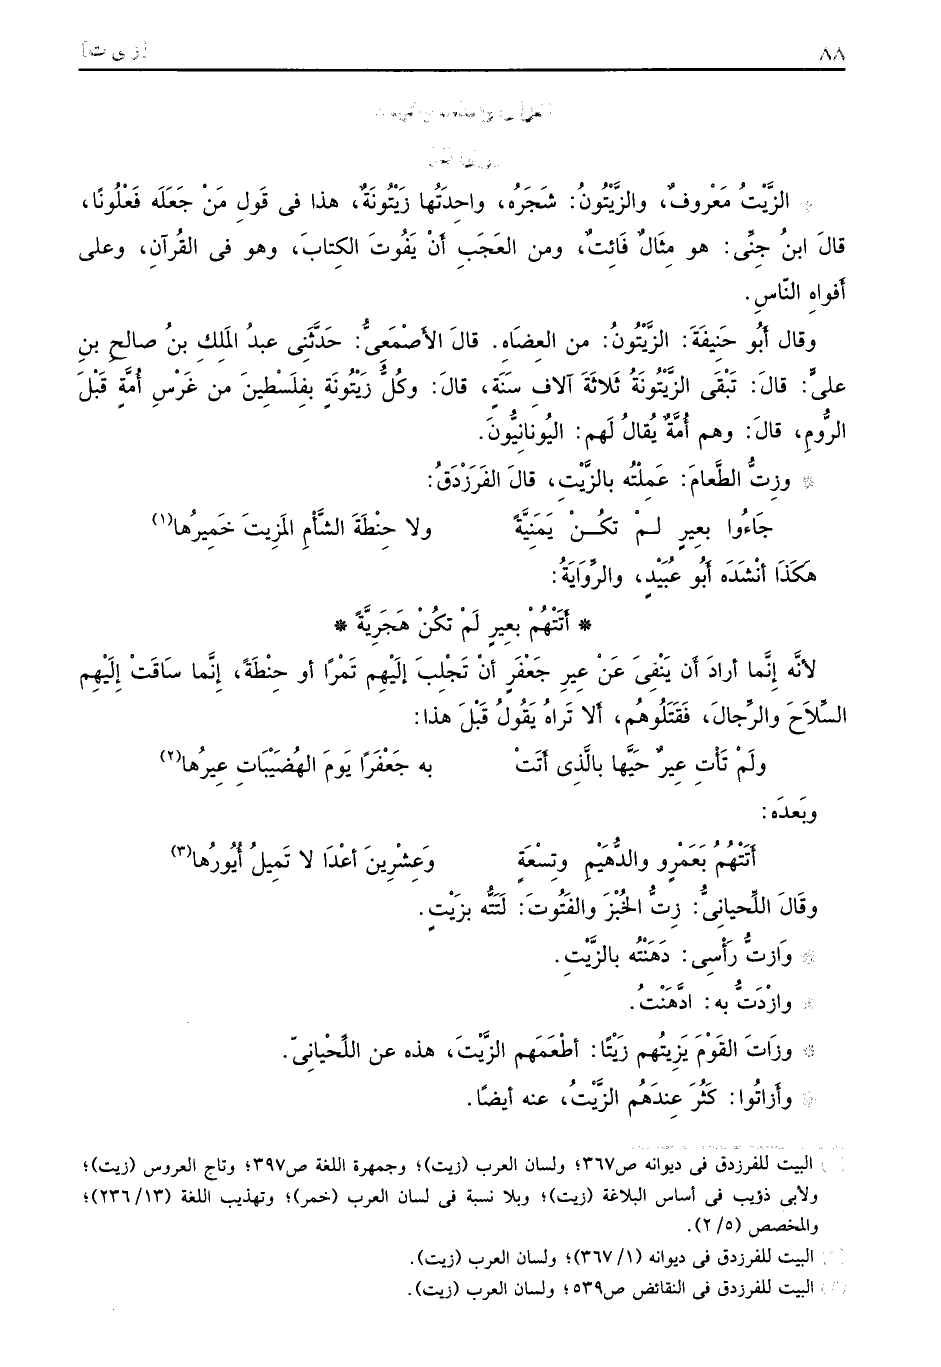 ٨٨ [ز ى ت]
* الزَّيْتُ مَعْروفٌ، والزَّيْتُونُ: شَجَرُه، واحِدَتُها زَيْتُونَةٌ، هذا فى قَولِ مَنْ جَعَلَه فَعْلُونًا،
قالَ ابنُ جنِّى: هو مِثَالٌ فَائتٌ، ومن العَجَبِ أنْ يَفُوتَ الكتابَ، وهو فى القُرآنِ، وعلى
أفواهِ النّاسِ.
وقال أبُو حَنِيفَةَ: الزَّيْتُونُ: من العِضَاه. قالَ الأصْمَعىُّ: حَدَّثَنِى عبدُ المَلِكِ بنُ صالحِ بنِ
علىٍّ: قالَ: تَبْقَى الزَّيْتُونَةُ ثَلاثَةَ آلافِ سَنَةٍ، قالَ: وكُلُّ زَيْتُونَةٍ بفِلَسْطِينَ من غَرْسِ أُمَّةٍ قَبْلَ
الرُّومِ، قالَ: وهم أُمَّةٌ يُقالُ لَهم: اليُونانِيُّونَ.
* وزِتُّ الطَّعامَ: عَمِلتُه بالزَّيْتِ، قالَ الفَرَزْدَقُ:
جَاءُوا بعِيرٍ لـمْ تكُــنْ يَمَنِيَّةً ولا حِنْطَةَ الشَّأْمِ المَزِيتَ خَمِيرُها(١)
هكَذَا أنْشَدَه أبُو عُبَيْدٍ، والرِّوَايَةُ:
* أتَتْهُمْ بعِيرٍ لَمْ تكُنْ هَجَرِيَّةً *
لأنَّه إنَّما أرادَ أن يَنْفِىَ عَنْ عِيرِ جَعْفَرٍ أنْ تَجْلِبَ إلَيْهِم تَمْرًا أو حِنْطَةً، إنَّما سَاقَتْ إلَيْهِم
السِّلاَحَ والرِّجالَ، فَقَتَلُوهُم، ألا تَراهُ يَقُولُ قَبْلَ هذا:
ولَمْ تَأْتِ عِيرٌ حَيَّها بالَّذِى أتَتْ به جَعْفَرًا يَومَ الهُضَيْبَاتِ عِيرُها(٢)
وبَعدَه:
أتَتْهُمْ بَعَمْرٍو والدُّهَيْمِ وتِسْعَةٍ وَعِشْرِينَ أعْدَا لا تَميلُ أُيُورُها(٣)
وقَالَ اللِّحيانِىُّ: زِتُّ الخُبْزَ والفَتُوتَ: لَتَتُّه بزَيْتٍ.
* وَازتُّ رَأْسِى: دَهَنْتُه بالزَّيْتِ.
* وازْدَتُّ به: ادَّهَنْتُ.
* وزَاتَ القَوْمَ يَزِيتُهم زَيْتًا: أطْعَمَهم الزَّيْتَ، هذه عن اللِّحْيانىّ.
* وأَزاتُوا: كَثُرَ عِندَهُم الزَّيْتُ، عنه أيضًا.
البيت للفرزدق فى ديوانه ص٣٦٧؛ ولسان العرب (زيت)؛ وجمهرة اللغة ص٣٩٧؛ وتاج العروس (زيت)؛
ولأبى ذؤيب فى أساس البلاغة (زيت)؛ وبلا نسبة فى لسان العرب (خمر)؛ وتهذيب اللغة (١٣/ ٢٣٦)؛
والمخصص (٥/ ٢).
البيت للفرزدق فى ديوانه (١/ ٣٦٧)؛ ولسان العرب (زيت).
البيت للفرزدق فى النقائض ص٥٣٩؛ ولسان العرب (زيت).